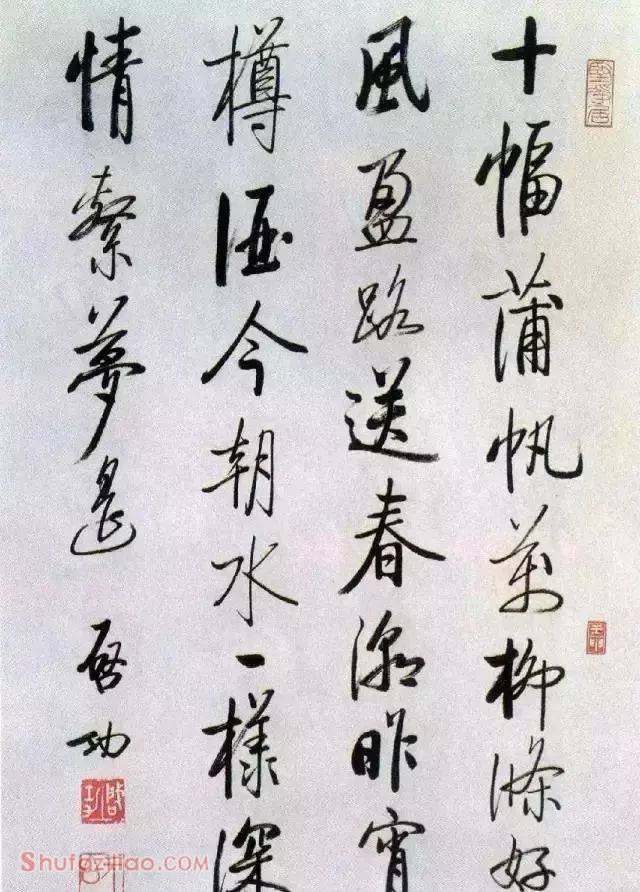 十幅蒲帆萬柳條好
風盈路送春潮昨宵
樽酒今朝水一樣深
情縈夢遥
啓功
Shufaziliao.com